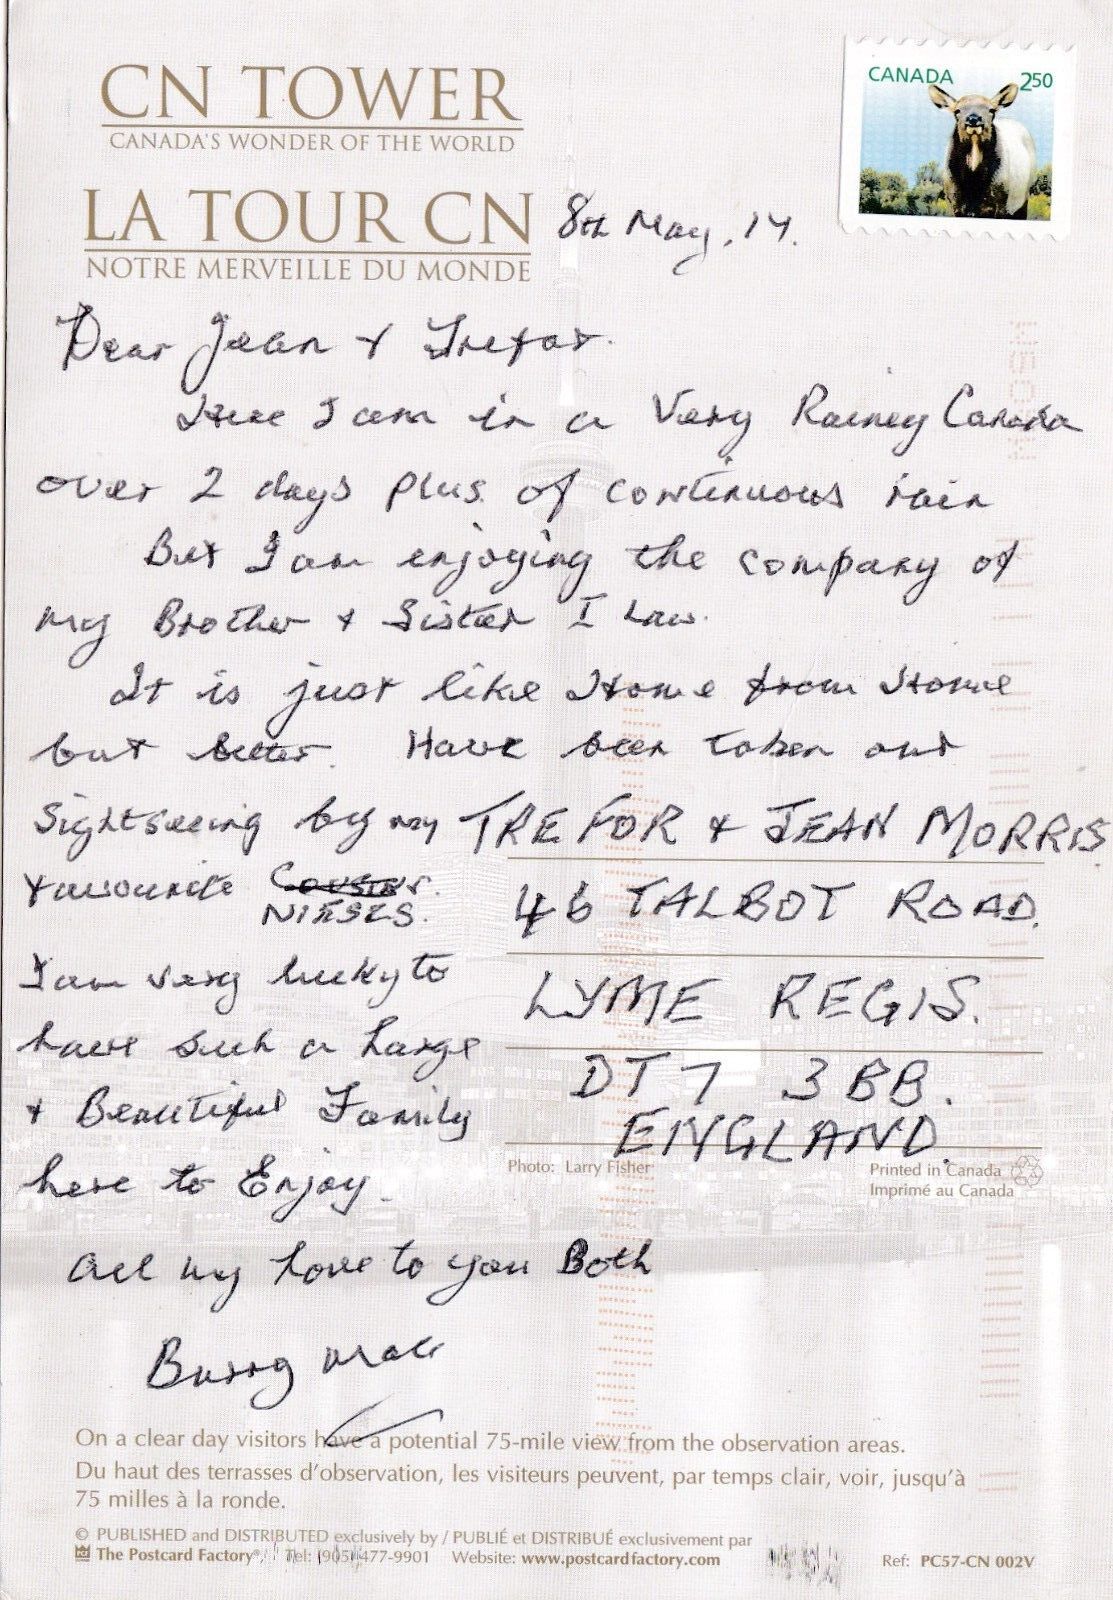 CN TOWER
CANADA'S WONDER OF THE WORLD
LA TOUR CN
NOTRE MERVEILLE DU MONDE
CANADA 2.50
8th May, 14.
Dear Jean + Trefor.
Here I am in a Very Rainey Canada
over 2 days plus of continuous rain
But I am enjoying the company of
my Brother + Sister I Law.
It is just like Home from Home
but better. Have been taken out
Sightseeing by my
favourite Cousins.
NIESES.
I am very lucky to
have such a Large
+ Beautiful Family
here to Enjoy.
All my Love to you Both
TREFOR + JEAN MORRIS
46 TALBOT ROAD.
LYME REGIS.
DT7 3BB.
ENGLAND.
Photo: Larry Fisher
Printed in Canada
Imprimé au Canada
On a clear day visitors have a potential 75-mile view from the observation areas.
Du haut des terrasses d'observation, les visiteurs peuvent, par temps clair, voir, jusqu'à
75 milles à la ronde.
© PUBLISHED and DISTRIBUTED exclusively by / PUBLIÉ et DISTRIBUÉ exclusivement par
The Postcard Factory®, Tel: (905) 477-9901 Website: www.postcardfactory.com
Ref: PC57-CN 002V